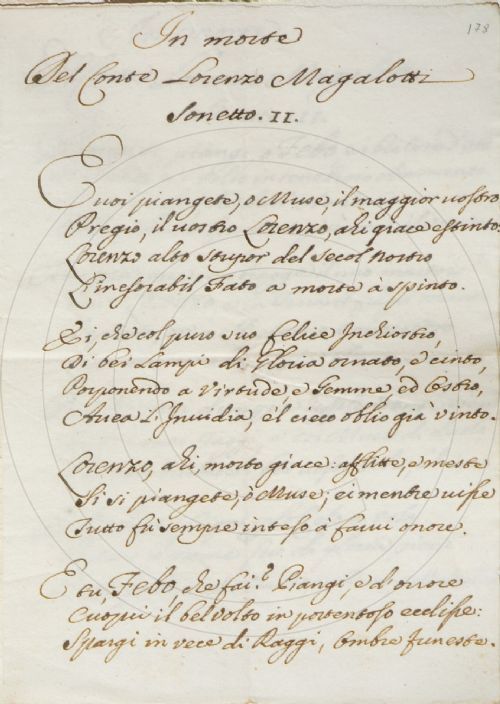 178
In morte
Del Conte Lorenzo Magalotti
Sonetto. II.
E uoi piangete, ò Muse, il maggior uostro
Pregio, il uostro Lorenzo, ahi giace estinto.
Lorenzo alto stupor del secol nostro
L'inesorabil Fato a morte à spinto.
Ei, che col puro suo felice Inchiostro,
Di bei Lampi di Gloria ornato, e cinto,
Posponendo a Virtude, e Gemme, ed Ostro,
Avea l'Inuidia, e'l cieco oblio già vinto.
Lorenzo, ahi, morto giace: afflitte, e meste
Si si piangete, ò Muse; ei mentre uisse
Tutto fù sempre inteso à farui onore.
E tu, Febo, che fai? Piangi, e d'orrore
Cuopri il bel volto in portentoso ecclisse:
Spargi in vece di Raggi, Ombre funeste.